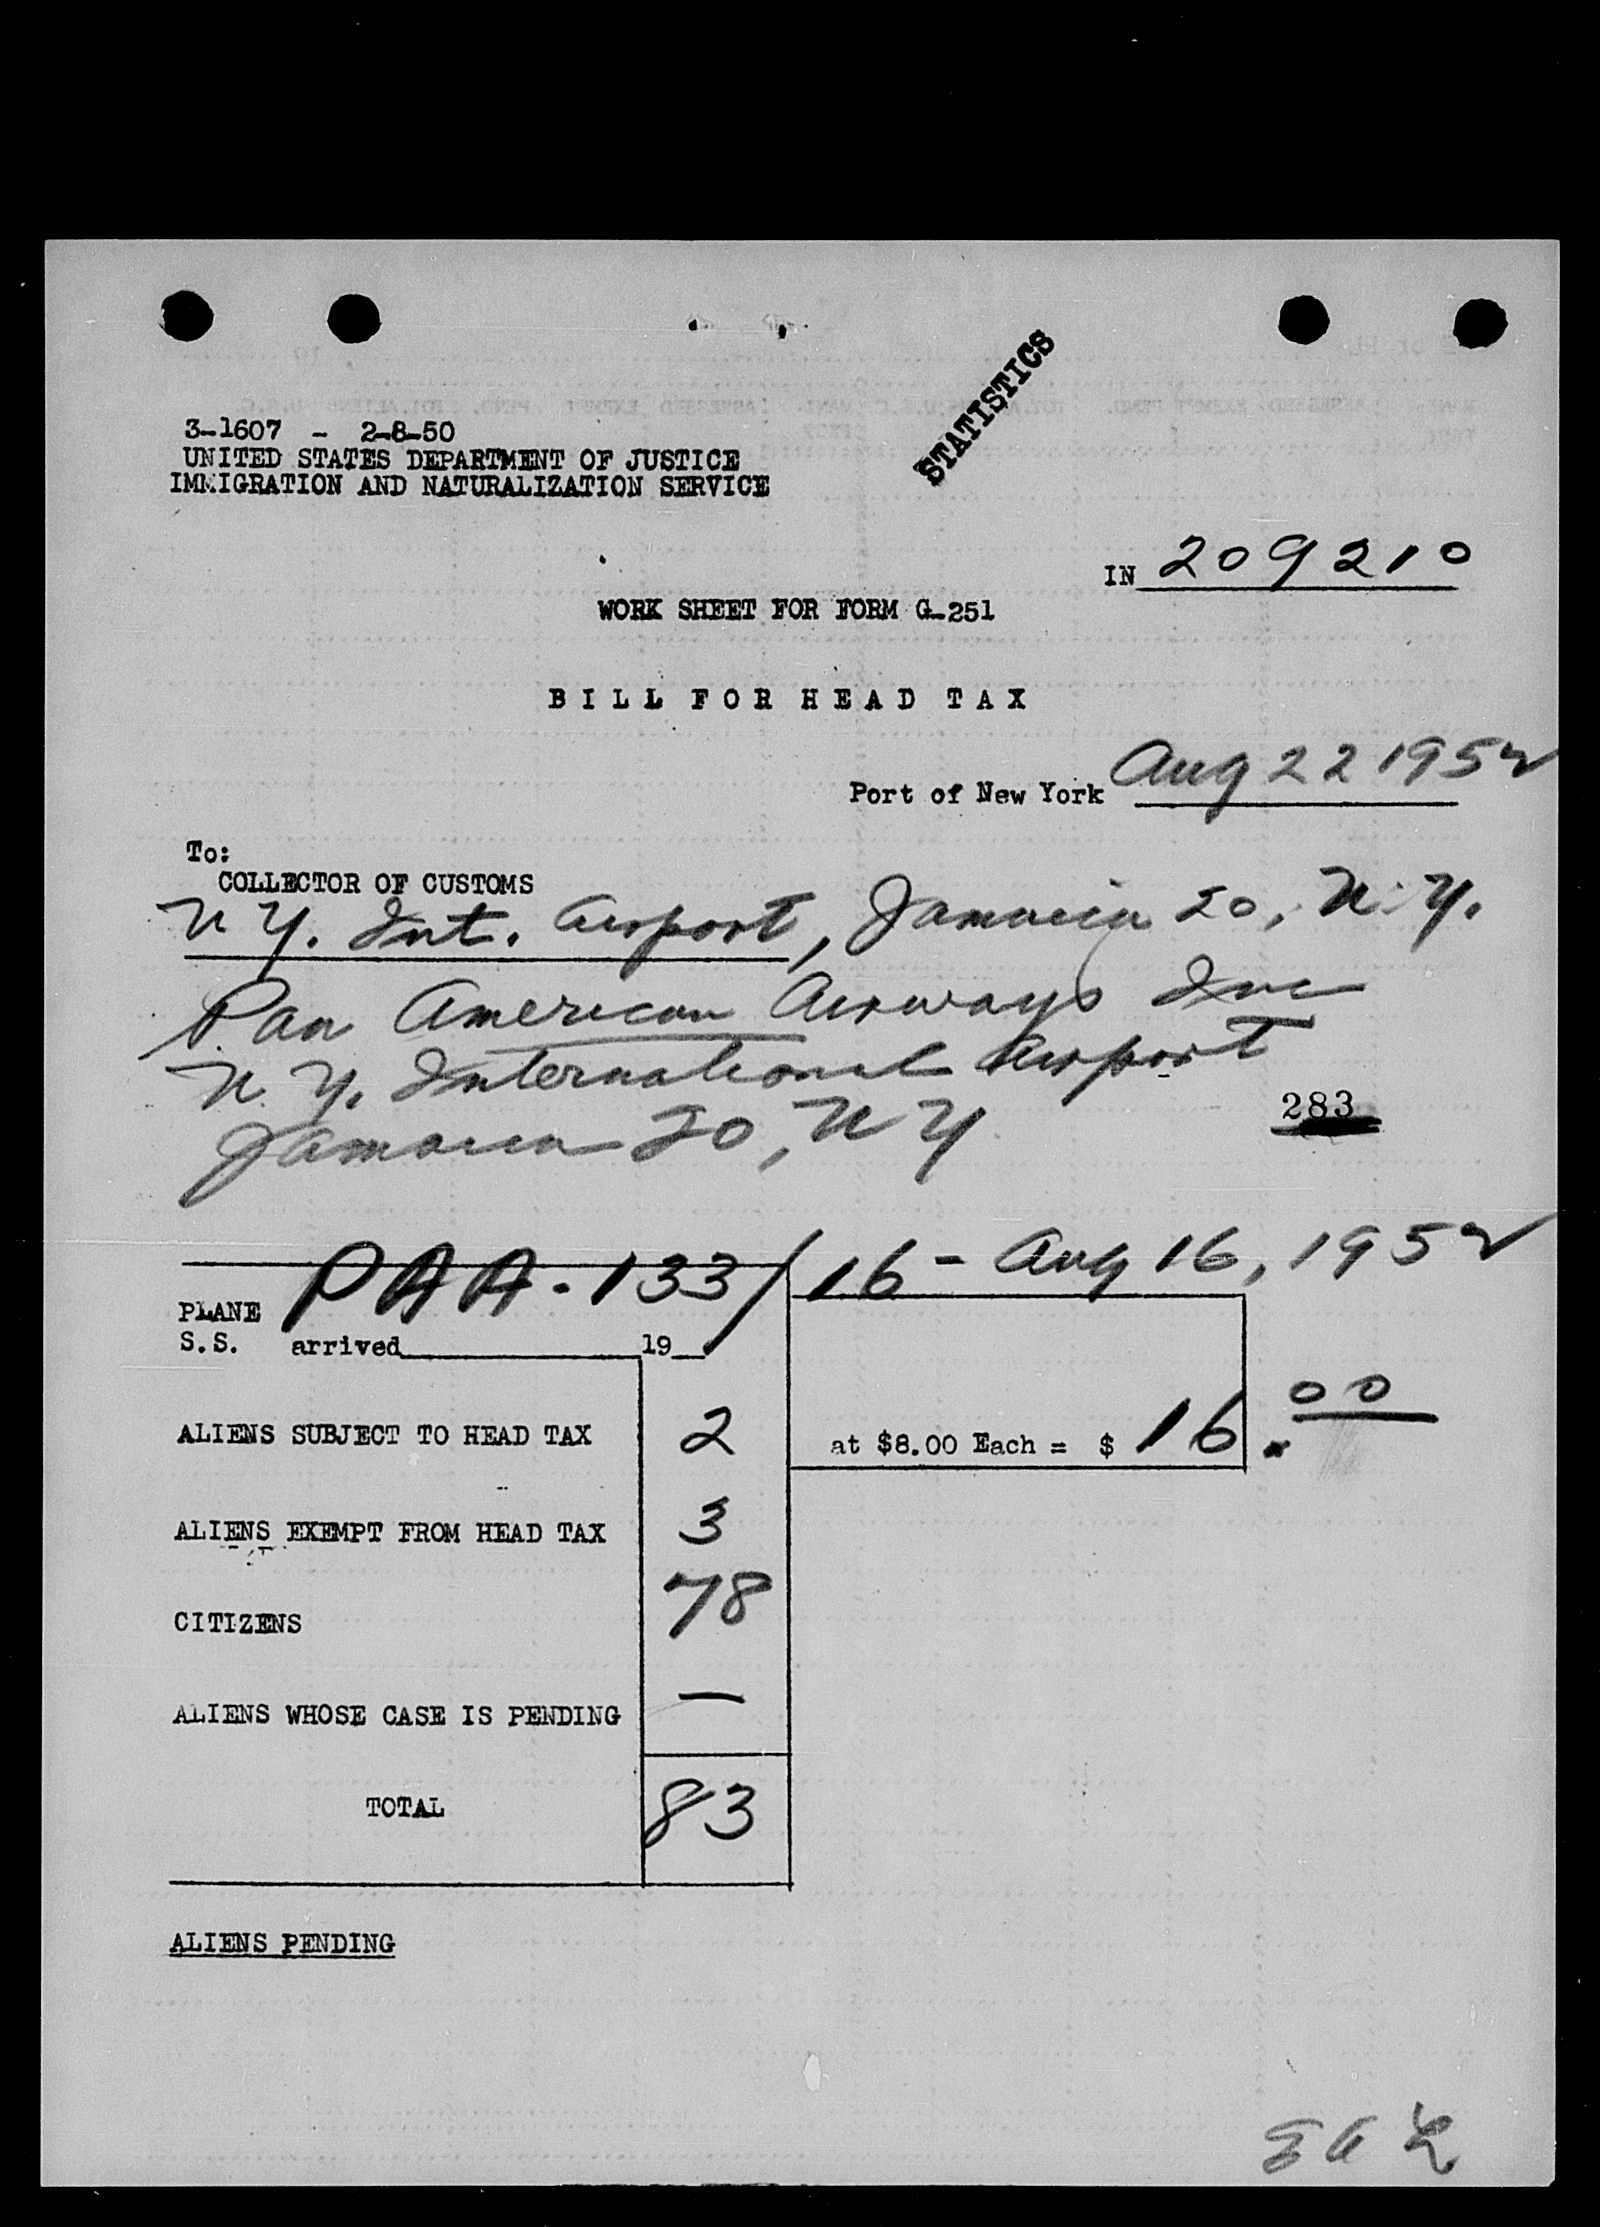 STATISTICS
3-1607 - 2-8-50
UNITED STATES DEPARTMENT OF JUSTICE
IMMIGRATION AND NATURALIZATION SERVICE
IN 209210
WORK SHEET FOR FORM G-251
BILL FOR HEAD TAX
Port of New York Aug 22 1952
To:
COLLECTOR OF CUSTOMS
N Y. Int. Airport, Jamaica 20, N.Y.
Pan American Airways Inc
N. Y. International Airport
283
Jamaica 20, N Y
PAA-133/16-Aug 16, 1952
PLANE
S.S. arrived 19
ALIENS SUBJECT TO HEAD TAX 2 at $8.00 Each = $ 16.00
ALIENS EXEMPT FROM HEAD TAX 3
CITIZENS 78
ALIENS WHOSE CASE IS PENDING —
TOTAL 83
ALIENS PENDING